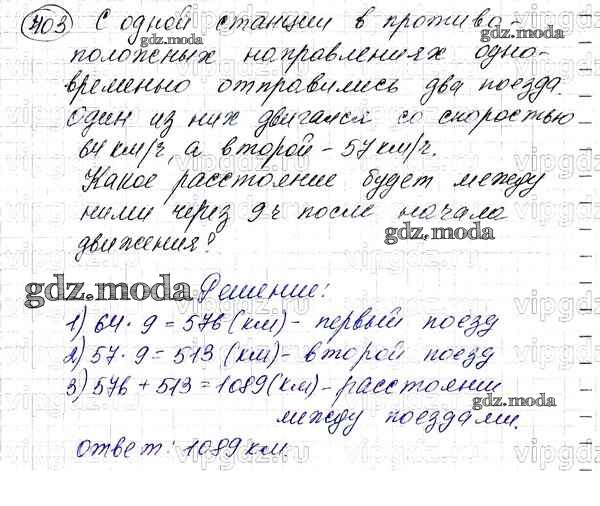 403 С одной станции в противо-
положных направлениях одно-
временно отправились два поезда.
Один из них двигался со скоростью
64 км/ч, а второй - 57 км/ч.
Какое расстояние будет между
ними через 9 ч после начала
движения?
Решение:
1) 64 · 9 = 576 (км) - первый поезд
2) 57 · 9 = 513 (км) - второй поезд
3) 576 + 513 = 1089 (км) - расстояни
между поездами.
ответ: 1089 км
gdz.moda
gdz.moda
gdz.moda
gdz.moda
gdz.moda
gdz.moda